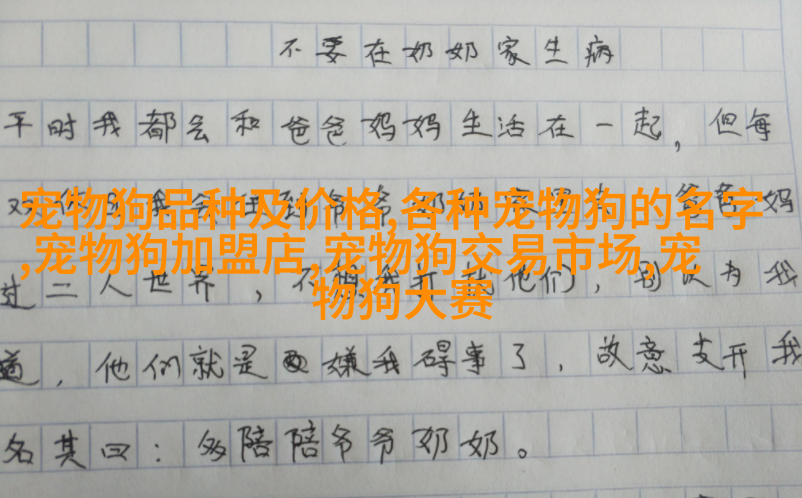 不要在奶奶家生病
平时我都会和爸爸妈妈生活在一起，但每
宠物狗品种及价格,各种宠物狗的名字
,宠物狗加盟店,宠物狗交易市场,宠
物狗大赛
过二人世界，不想我打扰他们，别以为我
道，他们就是嫌我碍事了，故意支开我
名其曰：多陪陪爷爷奶奶。